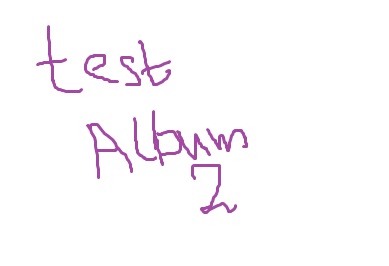 test
Album
2